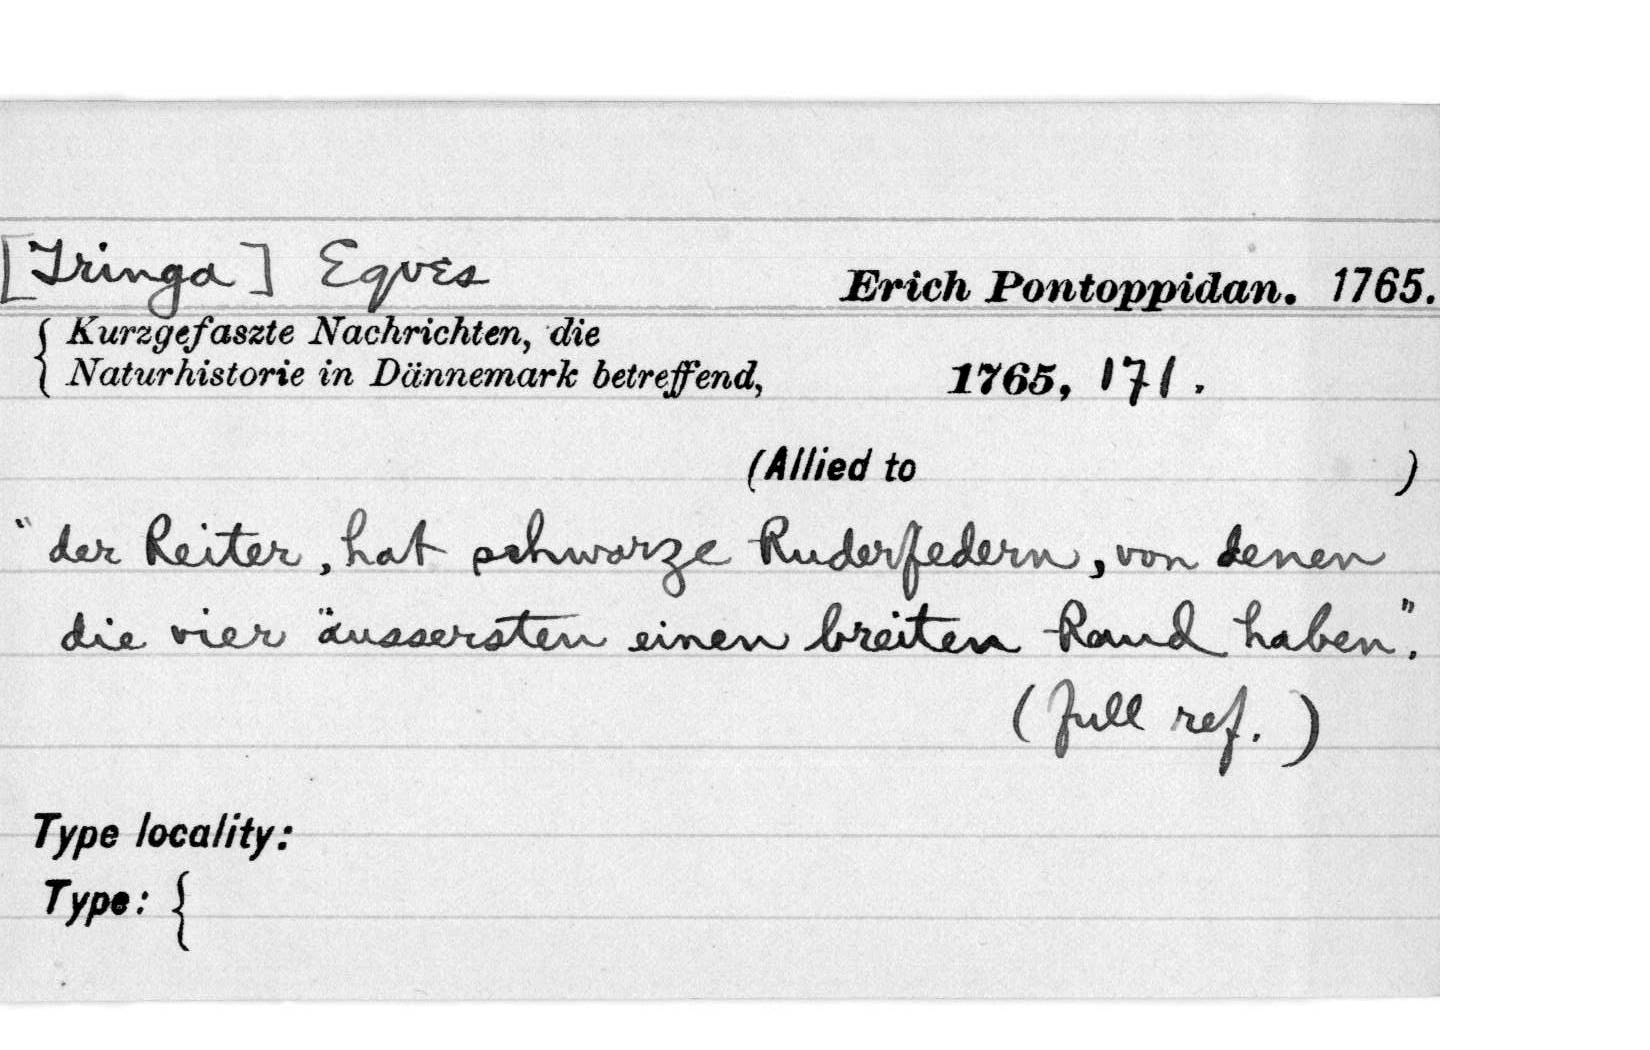 [Tringa] Eqves Erich Pontoppidan. 1765.
Kurzgefaszte Nachrichten, die
Naturhistorie in Dännemark betreffend, 1765, 171.
(Allied to )
"der Reiter, hat schwarze Ruderfedern, von denen
die vier äussersten einen breiten Rand haben".
(full ref.)
Type locality:
Type: {